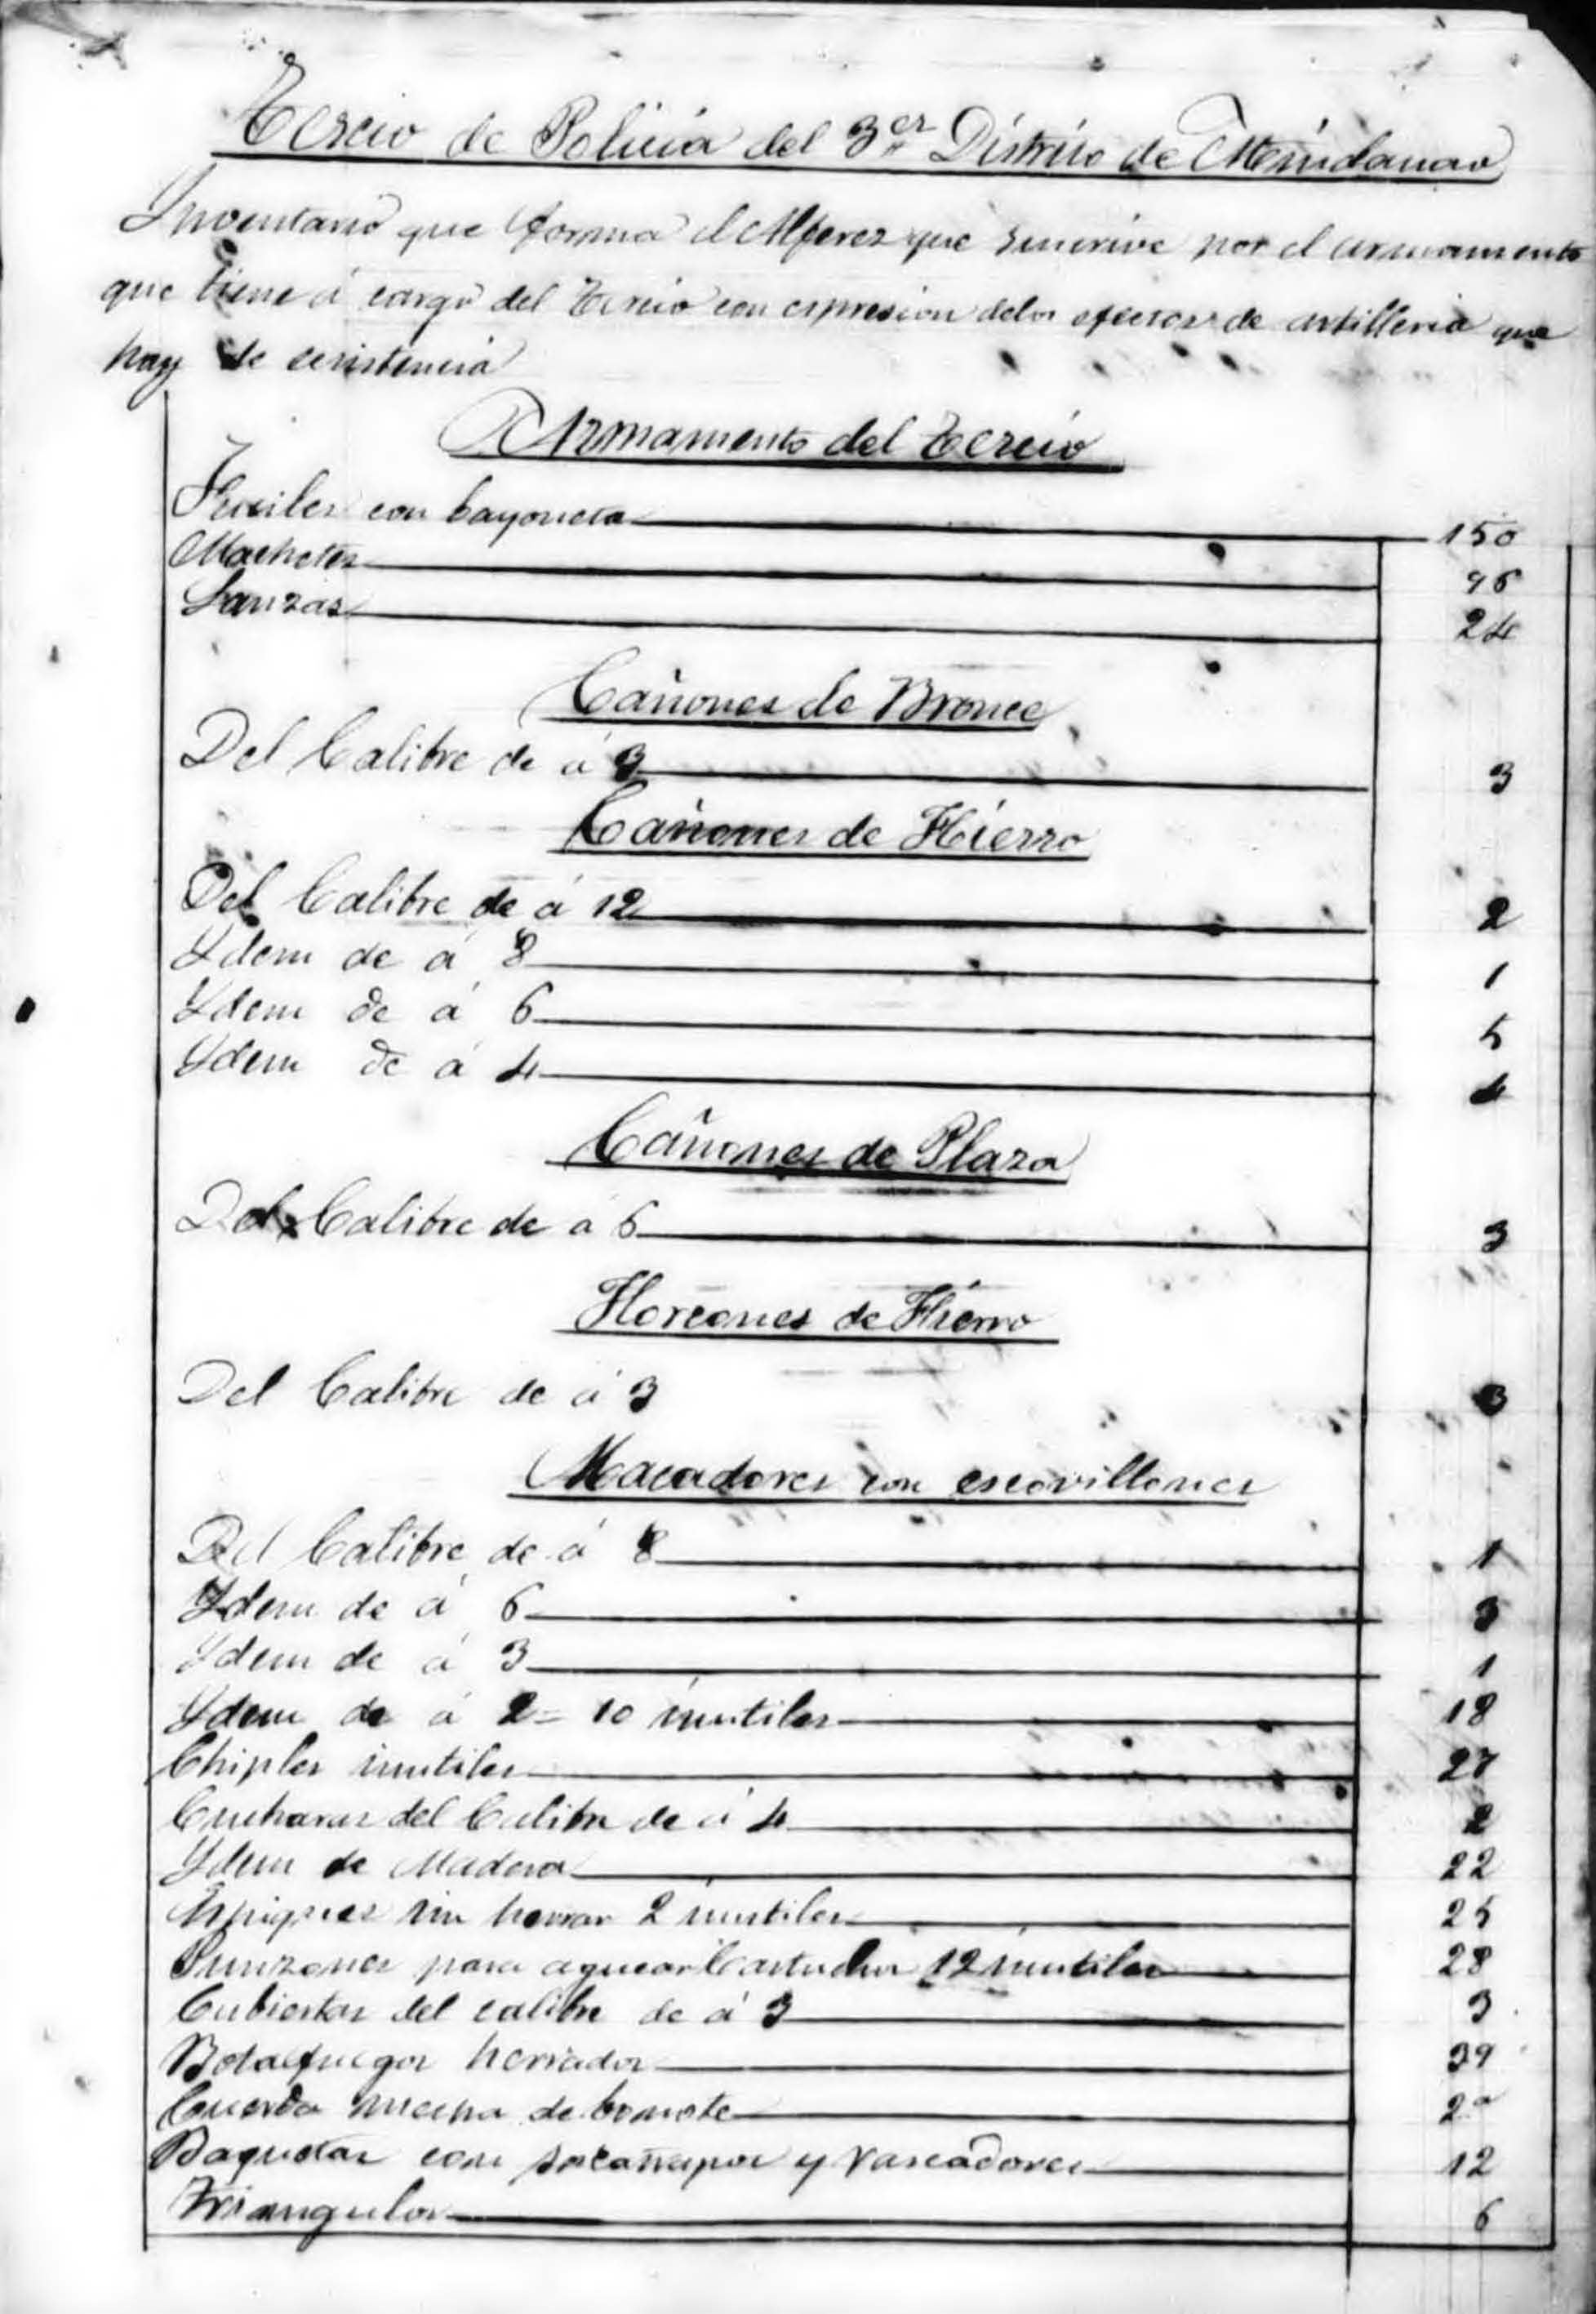 Tercio de Policia del 3er Distrito de Mindanao
Inventario que forma el Alferez que suscrive por el armamento
que tiene á cargo del Tercio con espresion delos efectos de artilleria que
hay de ecsistencia
Armamento del Tercio
Fusiles con bayoneta 150
Machetes 96
Lanzas 24
Cañones de Bronce
Del Calibre de á 3
Cañones de Hierro
Del Calibre de á 12 2
Ydem de á 8 1
Ydem de á 6 5
Ydem de á 4 4
Cañones de Plaza
Del Calibre de á 6 3
Horcones de Hierro
Del Calibre de á 3 3
Atacadores con escovillones
Del Calibre de á 8 1
Ydem de á 6
Ydem de á 3 1
Ydem de á 2 = 10 inutiles 18
Chifles inutiles 27
Cucharas del Calibre de á 4 2
Ydem de Madera 22
Espiques sin herrar 2 inutiles 25
Punzones para Cartuchos 12 inutiles 28
Cubiertas del calibre de á 3 3
Botafuegos herrados 39
Cuerda mecha de bonote 2a
Baquetas con y 12
Triangulos 6